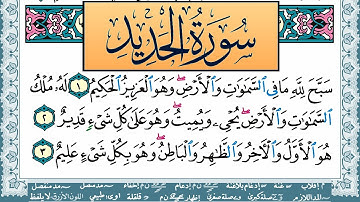 سُورَةُ الحَدِيدِ
سَبَّحَ لِلَّهِ مَا فِي ٱلسَّمَٰوَٰتِ وَٱلْأَرْضِ وَهُوَ ٱلْعَزِيزُ ٱلْحَكِيمُ ١ لَهُۥ مُلْكُ
ٱلسَّمَٰوَٰتِ وَٱلْأَرْضِ يُحْيِۦ وَيُمِيتُ وَهُوَ عَلَىٰ كُلِّ شَىْءٍ قَدِيرٌ ٢
هُوَ ٱلْأَوَّلُ وَٱلْءَاخِرُ وَٱلظَّٰهِرُ وَٱلْبَاطِنُ وَهُوَ بِكُلِّ شَىْءٍ عَلِيمٌ ٣